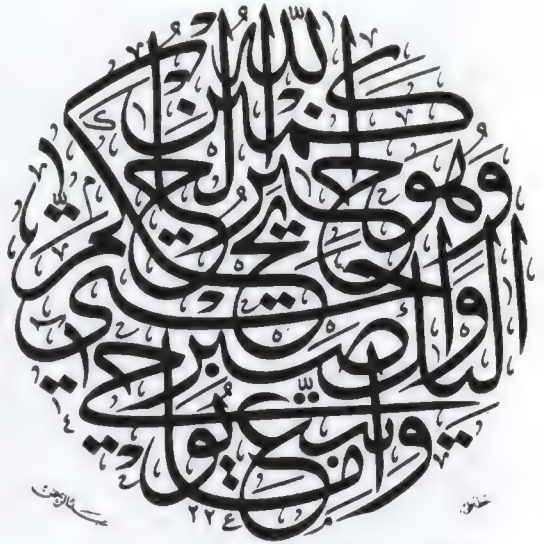 وَاتَّبِعْ مَا يُوحَىٰ
إِلَيْكَ وَاصْبِرْ حَتَّىٰ يَحْكُمَ
اللَّهُ وَهُوَ خَيْرُ الْحَاكِمِينَ